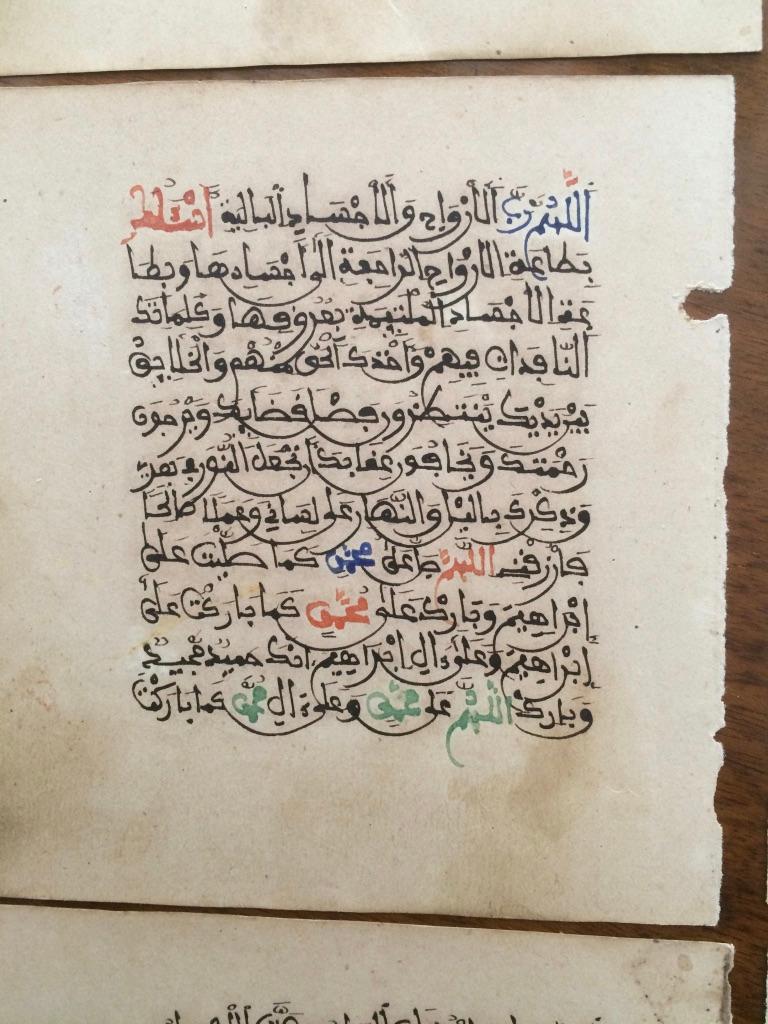 اللهم رب الأرواح والأجساد البالية أسئلك
بطاعة الأرواح الراجعة إلى أجسادها وبطا
عة الأجساد الملتئمة بعروقها وبكلماتك
النافذات فيهم وأخذك الحق منهم والخلايق
بين يديك ينتظرون فصل قضايك ويرجون
رحمتك ويخافون عقابك أن تجعل النور في بصري
وذكرك بالليل والنهار على لساني وعملا صالحا
فارزقني اللهم صل على محمد كما صليت على
إبراهيم وبارك على محمد كما باركت على
إبراهيم وعلى ءال إبراهيم إنك حميد مجيد
وبارك اللهم على محمد وعلى ءال محمد كما باركت